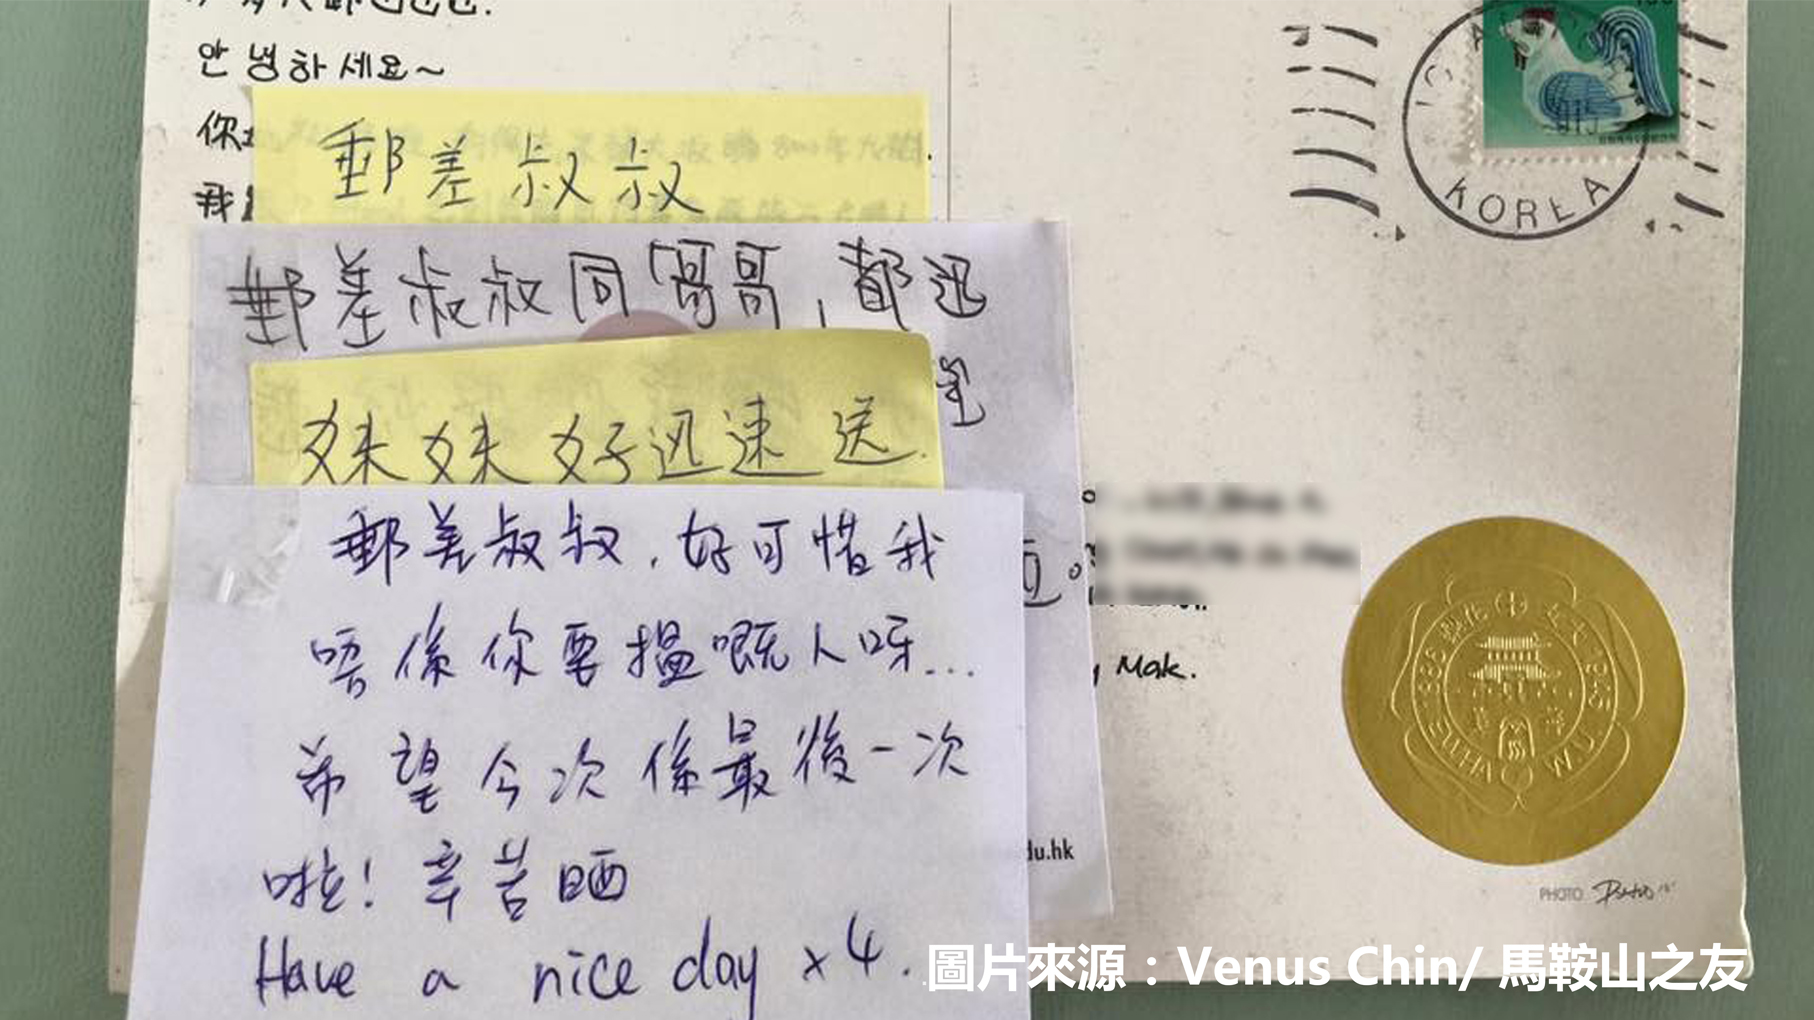 안녕하세요~
你
我
郵差叔叔
郵差叔叔同哥哥,都迅
妹妹好迅速送.
郵差叔叔,好可惜我
唔係你要搵嘅人呀...
希望今次係最後一次
啦!辛苦晒
Have a nice day x4.
KOREA
Mak.
du.hk
1886
EWHA W.U.
PHOTO
圖片來源:Venus Chin/ 馬鞍山之友